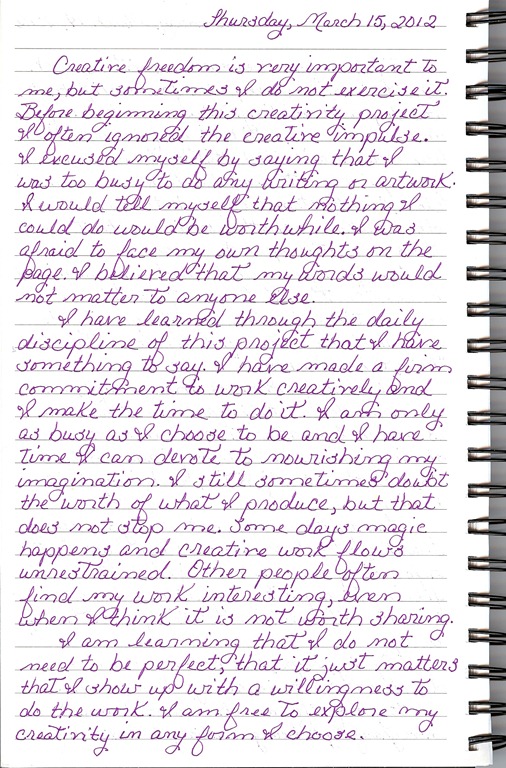 Thursday, March 15, 2012
Creative freedom is very important to
me, but sometimes I do not exercise it.
Before beginning this creativity project
I often ignored the creative impulse.
I excused myself by saying that I
was too busy to do any writing or artwork.
I would tell myself that nothing I
could do would be worthwhile. I was
afraid to face my own thoughts on the
page. I believed that my words would
not matter to anyone else.
I have learned through the daily
discipline of this project that I have
something to say. I have made a firm
commitment to work creatively and
I make the time to do it. I am only
as busy as I choose to be and I have
time I can devote to nourishing my
imagination. I still sometimes doubt
the worth of what I produce, but that
does not stop me. Some days magic
happens and creative work flows
unrestrained. Other people often
find my work interesting, even
when I think it is not worth sharing.
I am learning that I do not
need to be perfect, that it just matters
that I show up with a willingness to
do the work. I am free to explore my
creativity in any form I choose.